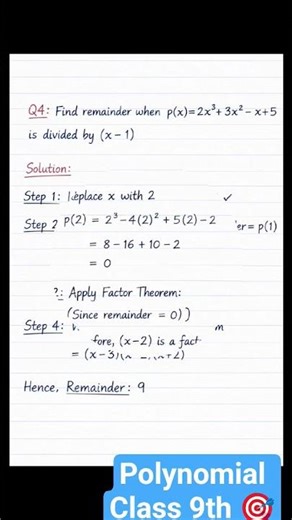 Q4: Find remainder when p(x)=2x³+3x²−x+5
is divided by (x−1)
Solution:
Step 1: place x with 2 ✓
Step 2 p(2) = 2³−4(2)²+5(2)−2 er= p(1)
= 8−16+10−2
= 0
?: Apply Factor Theorem:
(Since remainder = 0))
Step 4:
fore, (x−2) is a fact
= (x−3)
Hence, Remainder: 9
Polynomial
Class 9th 🎯